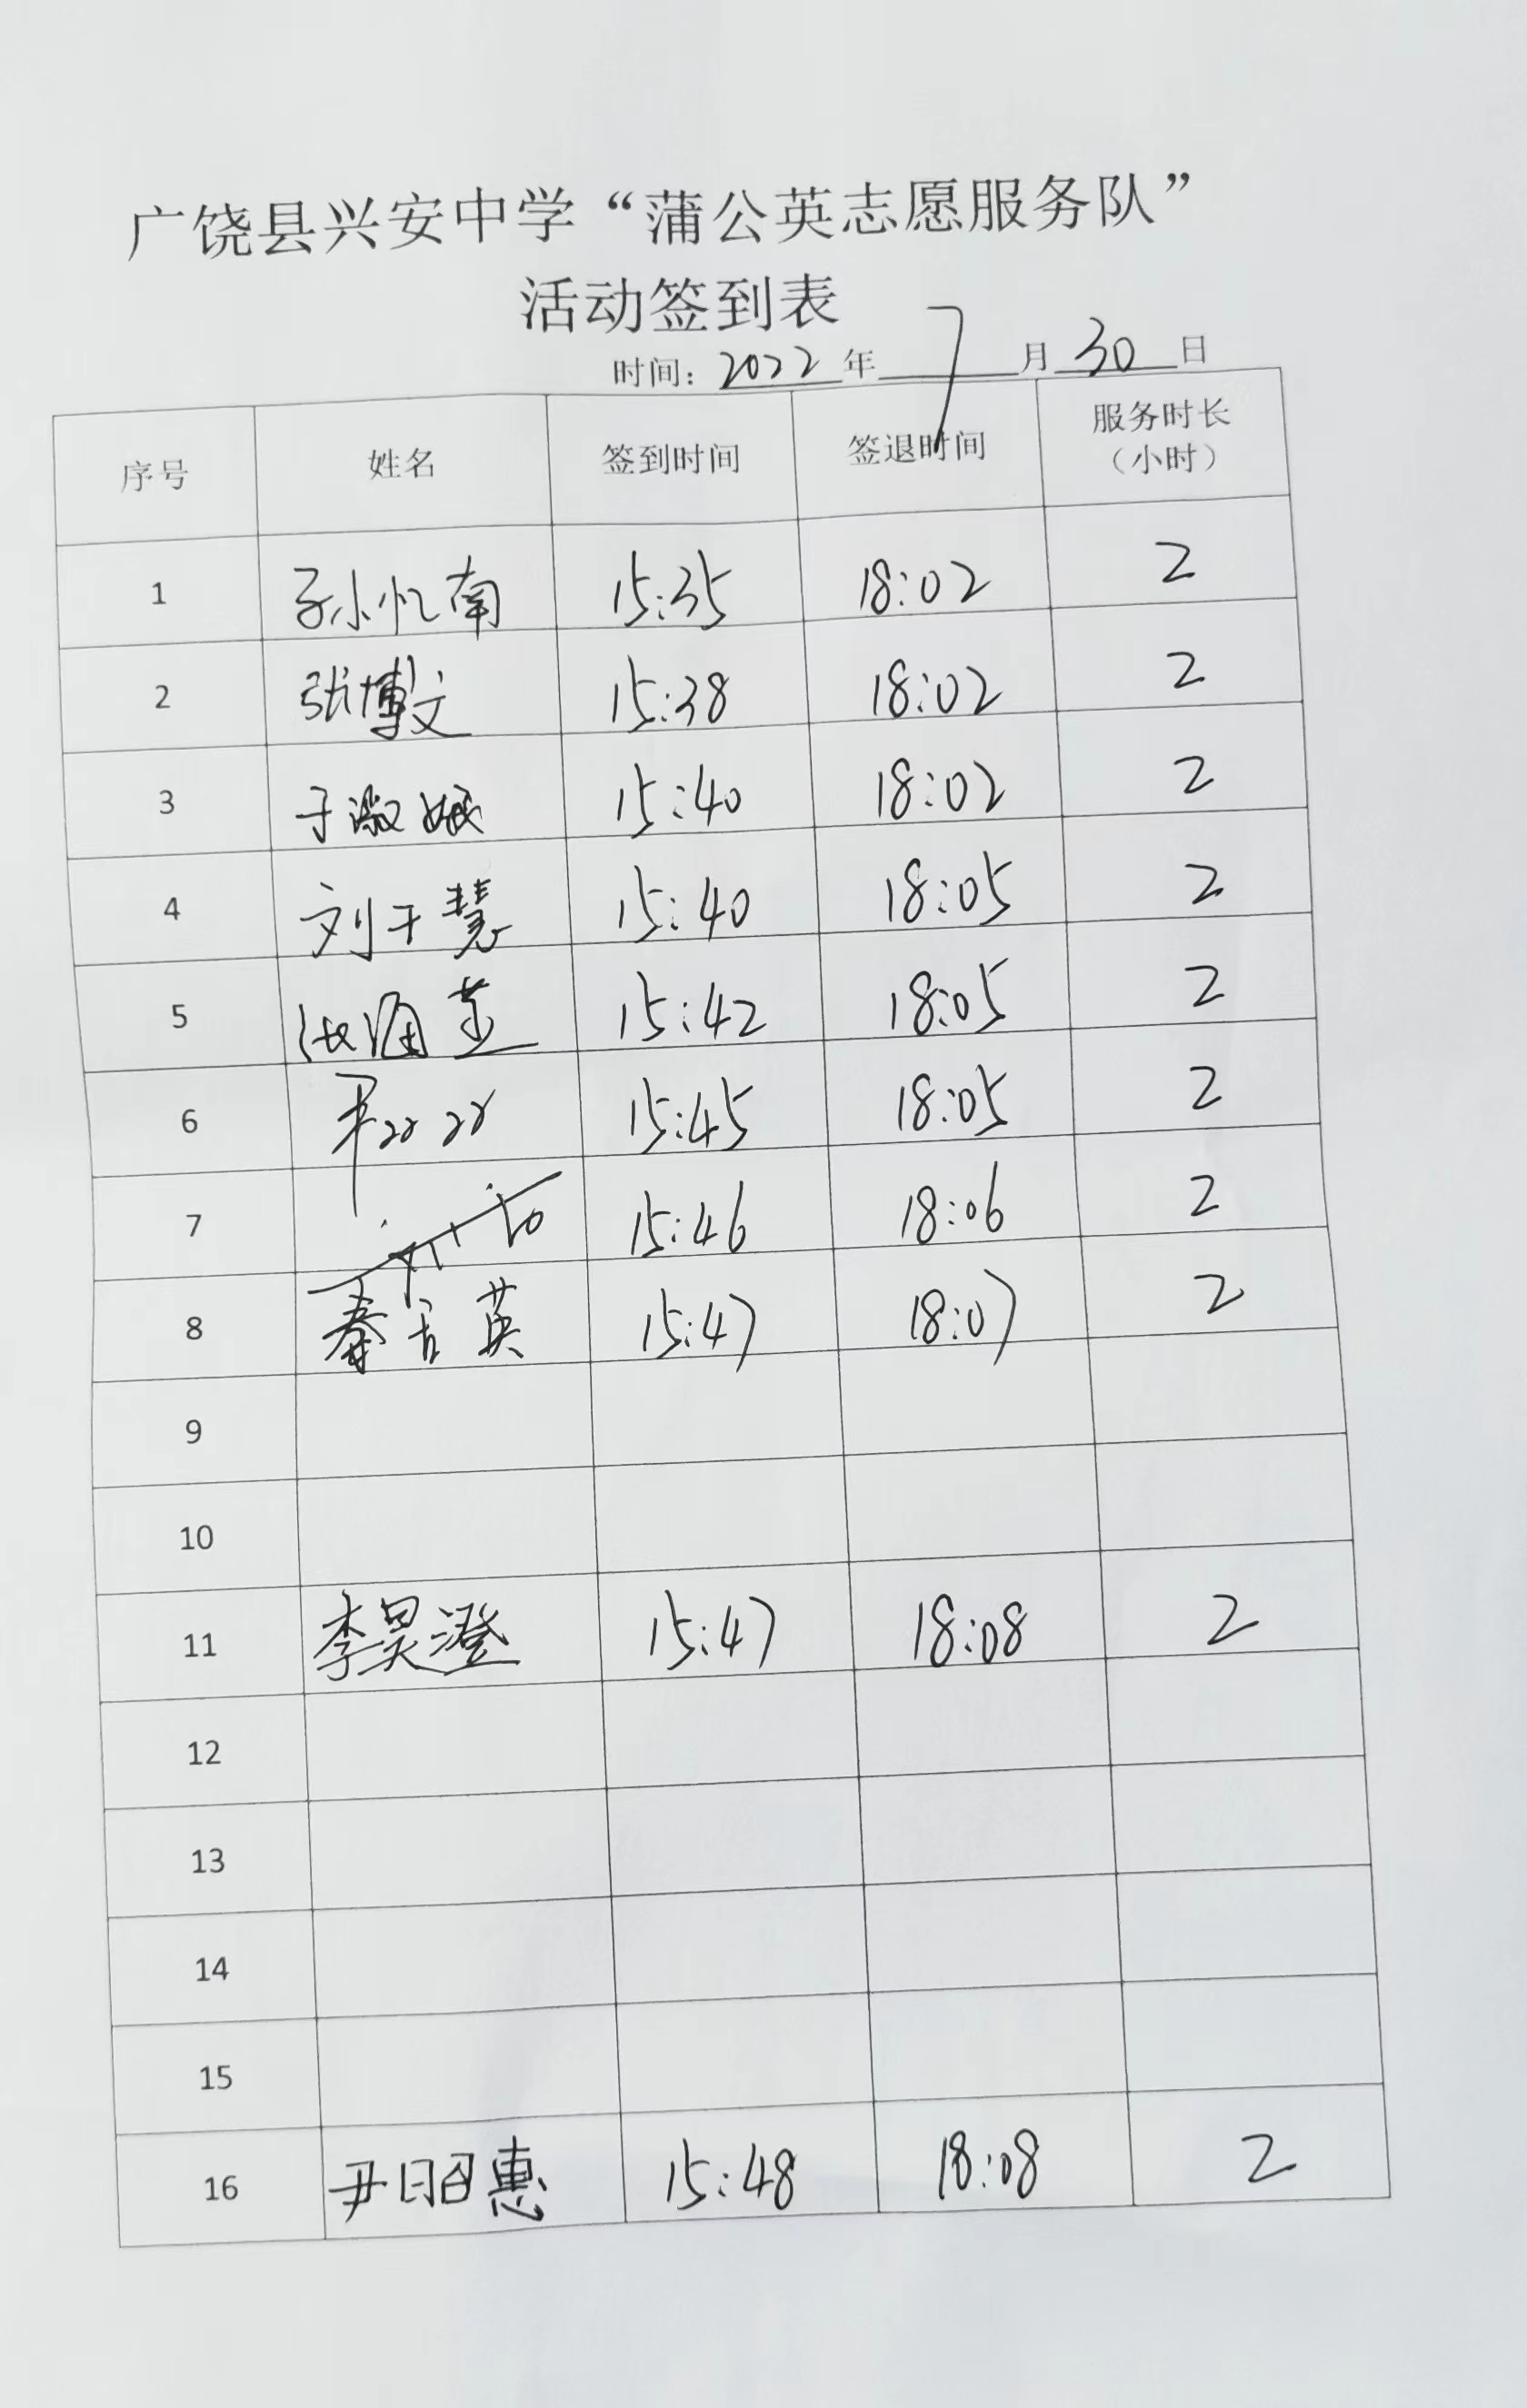 广饶县兴安中学“蒲公英志愿服务队”
活动签到表
时间：2022年7月30日
序号 姓名 签到时间 签退时间 服务时长（小时）
1 孙忆南 15:35 18:02 2
2 张博文 15:38 18:02 2
3 于淑娥 15:40 18:02 2
4 刘于慧 15:40 18:05 2
5 15:42 18:05 2
6 15:45 18:05 2
7 15:46 18:06 2
8 秦吉英 15:47 18:07 2
9
10
11 李昊澄 15:47 18:08 2
12
13
14
15
16 尹昭惠 15:48 18:08 2